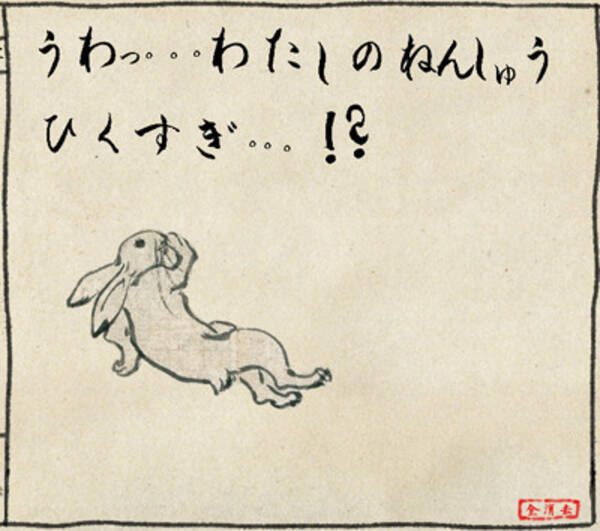 うわっ・・・わたしのねんしゅう
ひくすぎ・・・!?
全消去